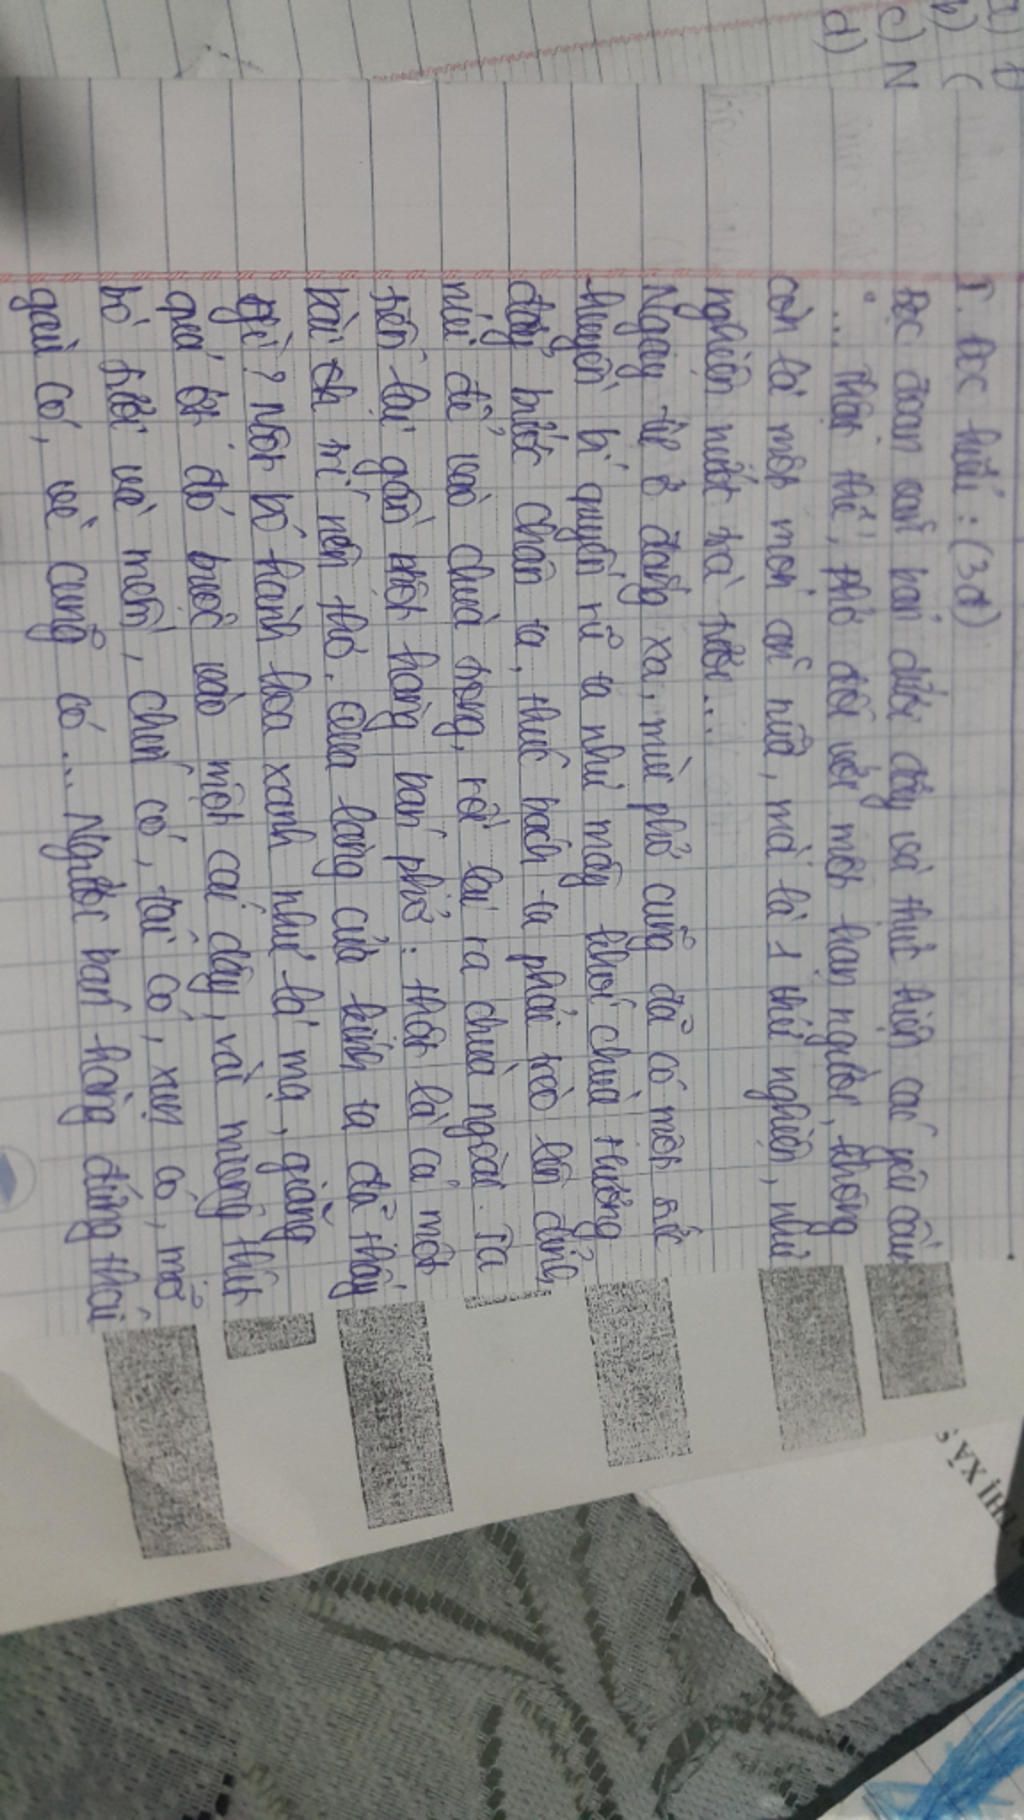 a) D
b) C
c) N
d)
I. Đọc hiểu: (3đ)
Đọc đoạn văn bản dưới đây và thực hiện các yêu cầu
"... Thật thế, phở đối với một hạng người, không
còn là một món ăn nữa, mà là 1 thứ nghiện, như
nghiện nước trà tươi...
Ngay từ ở đằng xa, mùi phở cũng đã có một sức
huyền bí quyến rũ ta như mây khói chùa Hương
đẩy bước chân ta, thúc bách ta phải trèo lên đỉnh
núi để vào chùa trong, rồi lại ra chùa ngoài. Ta
tiến lại gần một hàng bán phở: thật là cả một
bài trí nên thơ. Qua làn cửa kính ta đã thấy
gì? Một bó hành hoa xanh như lá mạ, giằng
quả ớt đỏ buộc vào một cái dây, vài miếng thịt
bò tươi và mềm, chín có, tái có, sụn có, mỡ
gàu có, vè cũng có... Người bán hàng đứng thái
THỊ XÃ S